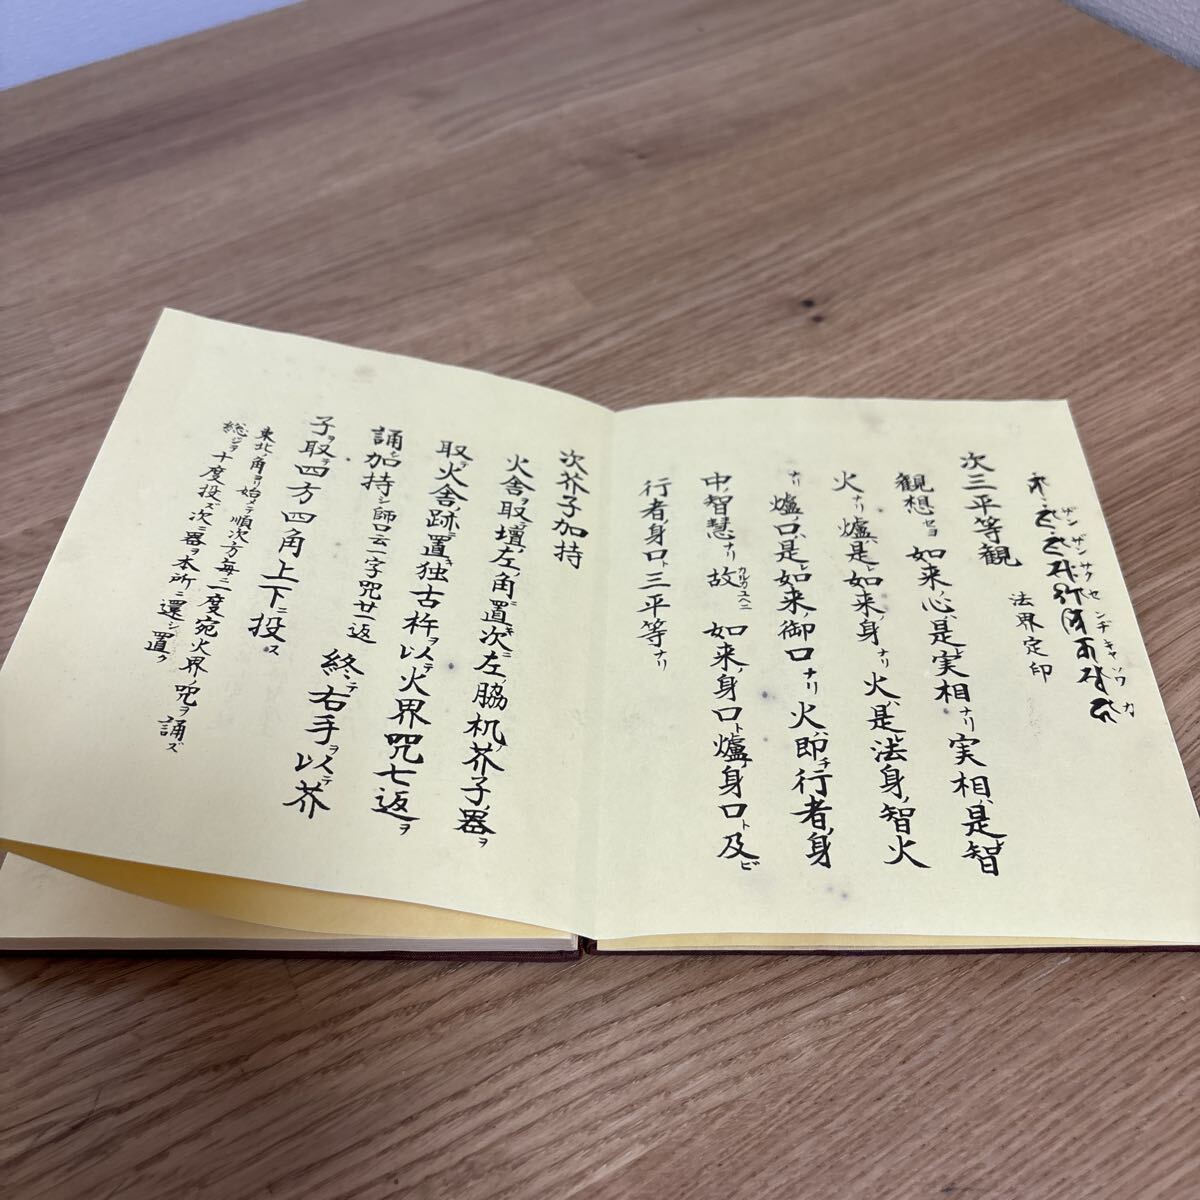 ザン ザン サク センヂキャソワカ
次三平等観 法界定印
観想セヨ 如来ノ心ハ是レ実相ナリ 実相ハ是レ智
火ナリ 爐ハ是レ如来ノ身ナリ 火ハ是レ法身ノ智火
ナリ 爐ノ口ハ是レ如来ノ御口ナリ 火ハ即チ行者ノ身
中智慧ナリ 故ニ 如来ノ身口ト 爐ノ身口ト及ビ
行者ノ身口ト三平等ナリ
次芥子加持
火舎ヲ取壇ノ左ノ角ニ置キ 次ニ左ノ脇机ノ芥子ノ器ヲ
取テ火舎ノ跡ニ置キ 独古杵ヲ以テ火界ノ咒七返ヲ
誦ヒ加持シ 師口云一字咒廿一返 終テ右手ヲ以テ芥
子ヲ取テ四方四角上下ニ投ス
東北ノ角ヨリ始メテ順次ニ方毎ニ一度宛火界ノ咒ヲ誦ズ
総ジテ十度投ズ 次ニ器ヲ本所ニ還シ置ク